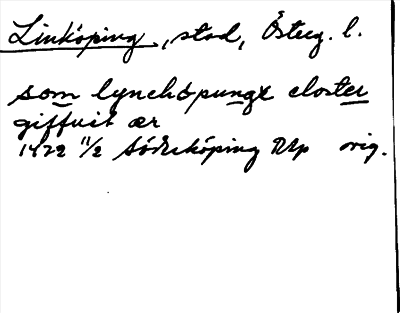 Linköping, stad, Österg. l.
som lynchöpungx closter
giffuit ær
1422 11/2 Söderköping Rap orig.